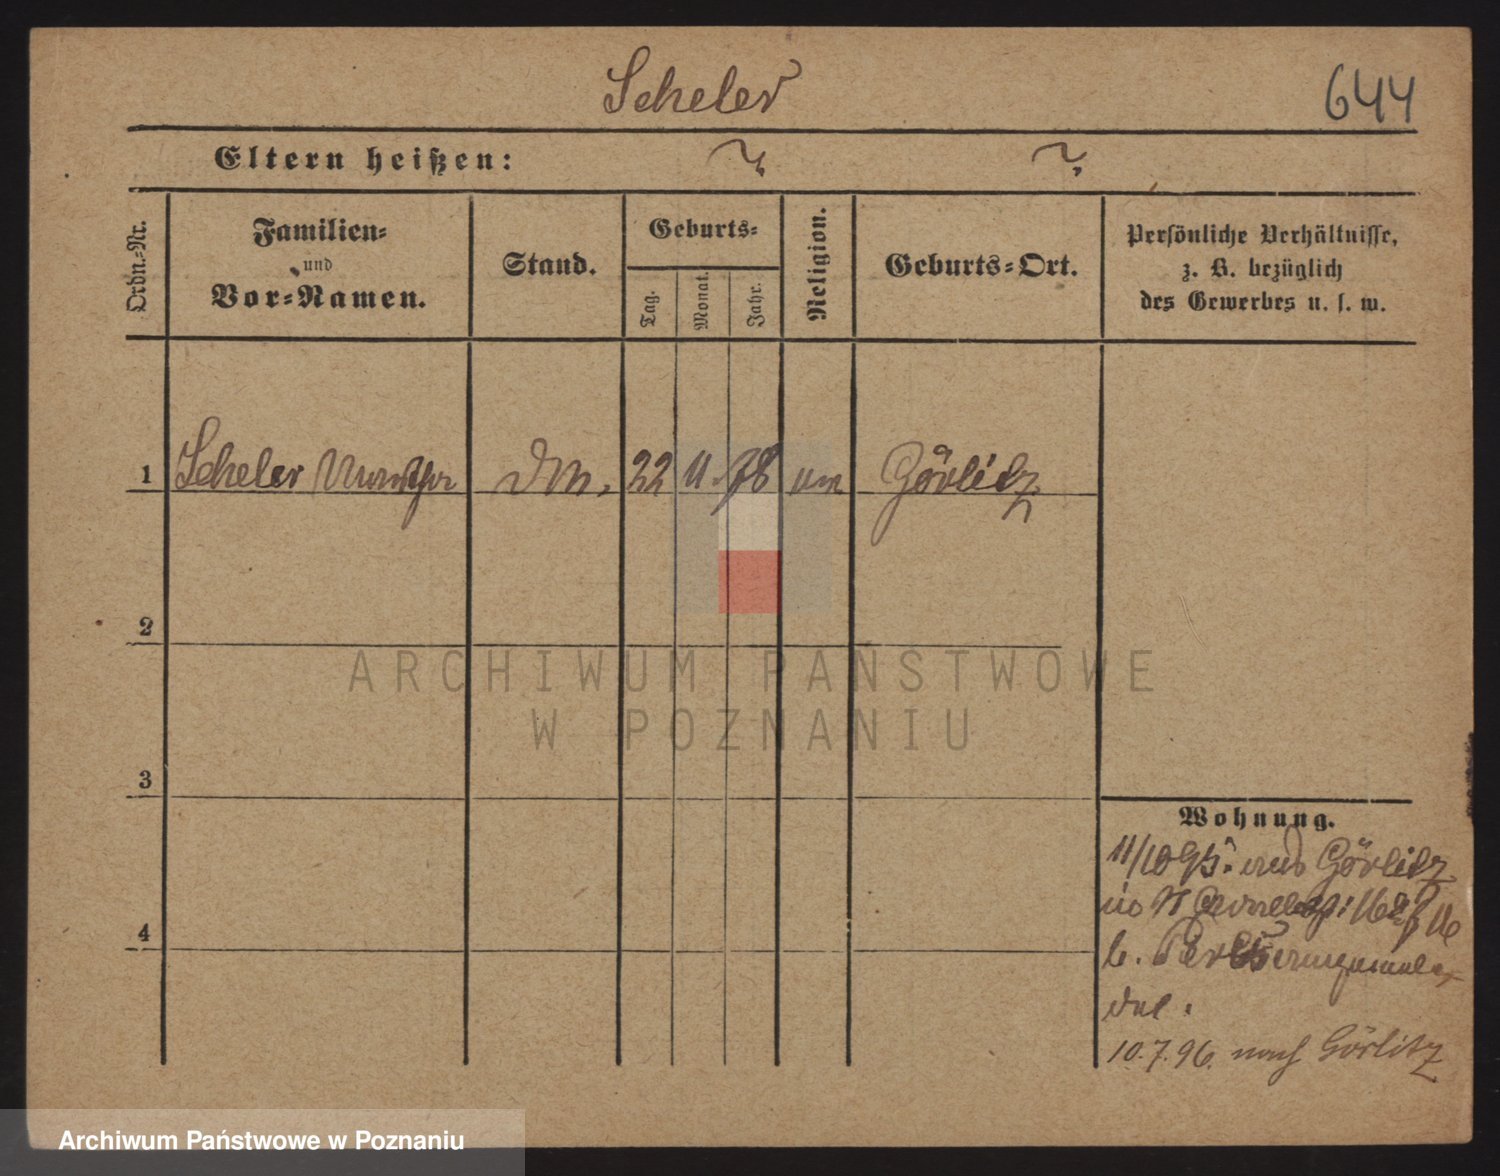 Scheler
644
Eltern heißen:
Ordn.-Nr.
Familien-
und
Vor-Namen.
Stand.
Geburts-
Tag.
Monat.
Jahr.
Religion.
Geburts-Ort.
Persönliche Verhältnisse,
z. B. bezüglich
des Gewerbes u. s. w.
1 Scheler 22 11 78 Görlitz
2
3
4
ARCHIWUM PAŃSTWOWE
W POZNANIU
Wohnung.
11/10 95. aus Görlitz
b.
10.7.96. nach Görlitz
Archiwum Państwowe w Poznaniu